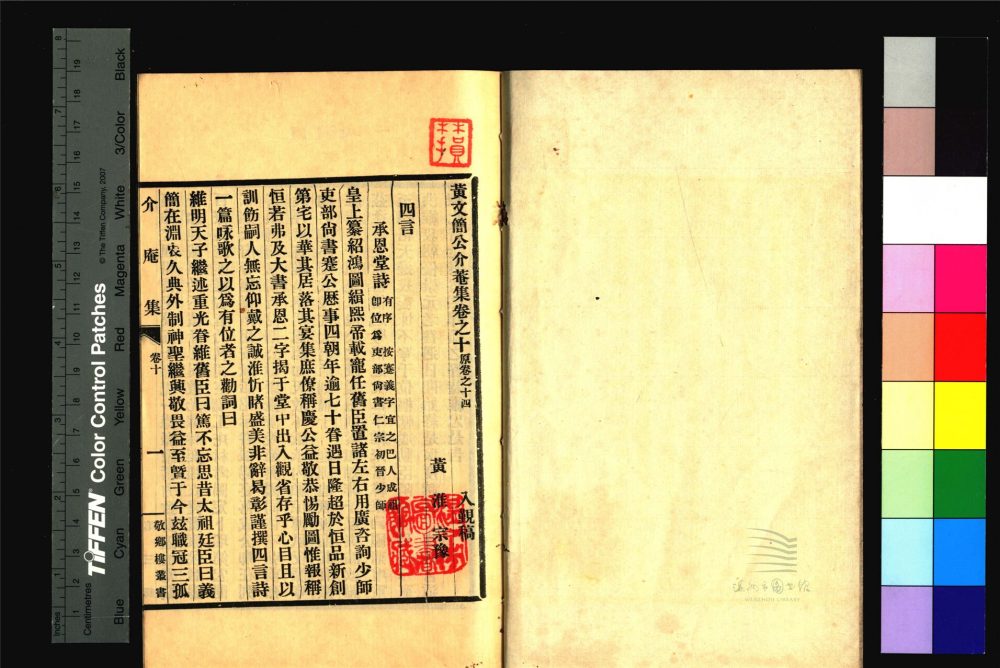 黃文簡公介菴集卷之十原卷之十四
入覲稿
黃淮宗豫
四言
承恩堂詩有序 按蹇義字宜之巴人成祖即位爲吏部尚書仁宗初晉少師
皇上纂紹鴻圖緝熙帝載寵任舊臣置諸左右用廣咨詢少師
吏部尚書蹇公歷事四朝年逾七十眷遇日隆超於恒品新創
第宅以華其居落其宴集庶僚稱慶公益敬恭惕勵圖惟報稱
恒若弗及大書承恩二字揭于堂中出入觀省存乎心目且以
訓飭嗣人無忘仰戴之誠淮忻睹盛美非辭曷彰謹撰四言詩
一篇咏歌之以爲有位者之勸詞曰
維明天子繼述重光眷維舊臣曰篤不忘思昔太祖廷臣曰義
簡在淵衷久典外制神聖繼興敬畏益至曁于今玆職冠三孤
介庵集
卷十
一
敬鄉樓叢書
Inches
Centimetres
TIFFEN® Color Control Patches
© The Tiffen Company, 2007
Blue Cyan Green Yellow Red Magenta White 3/Color Black
WENZHOU LIBRARY